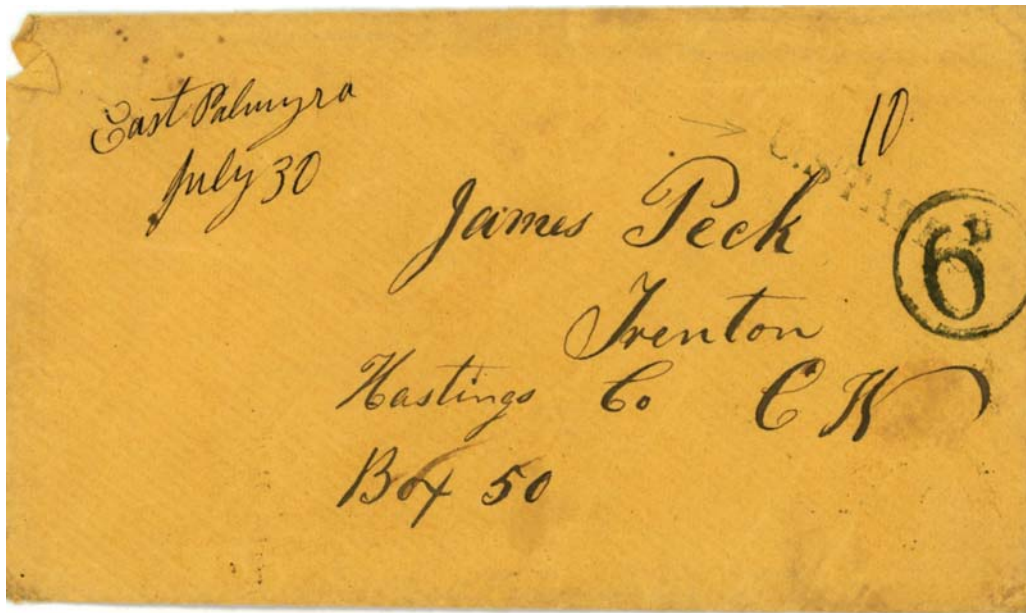 East Palmyra
July 30
10
U.STATES
6D
James Peck
Trenton
Hastings Co C W
Box 50